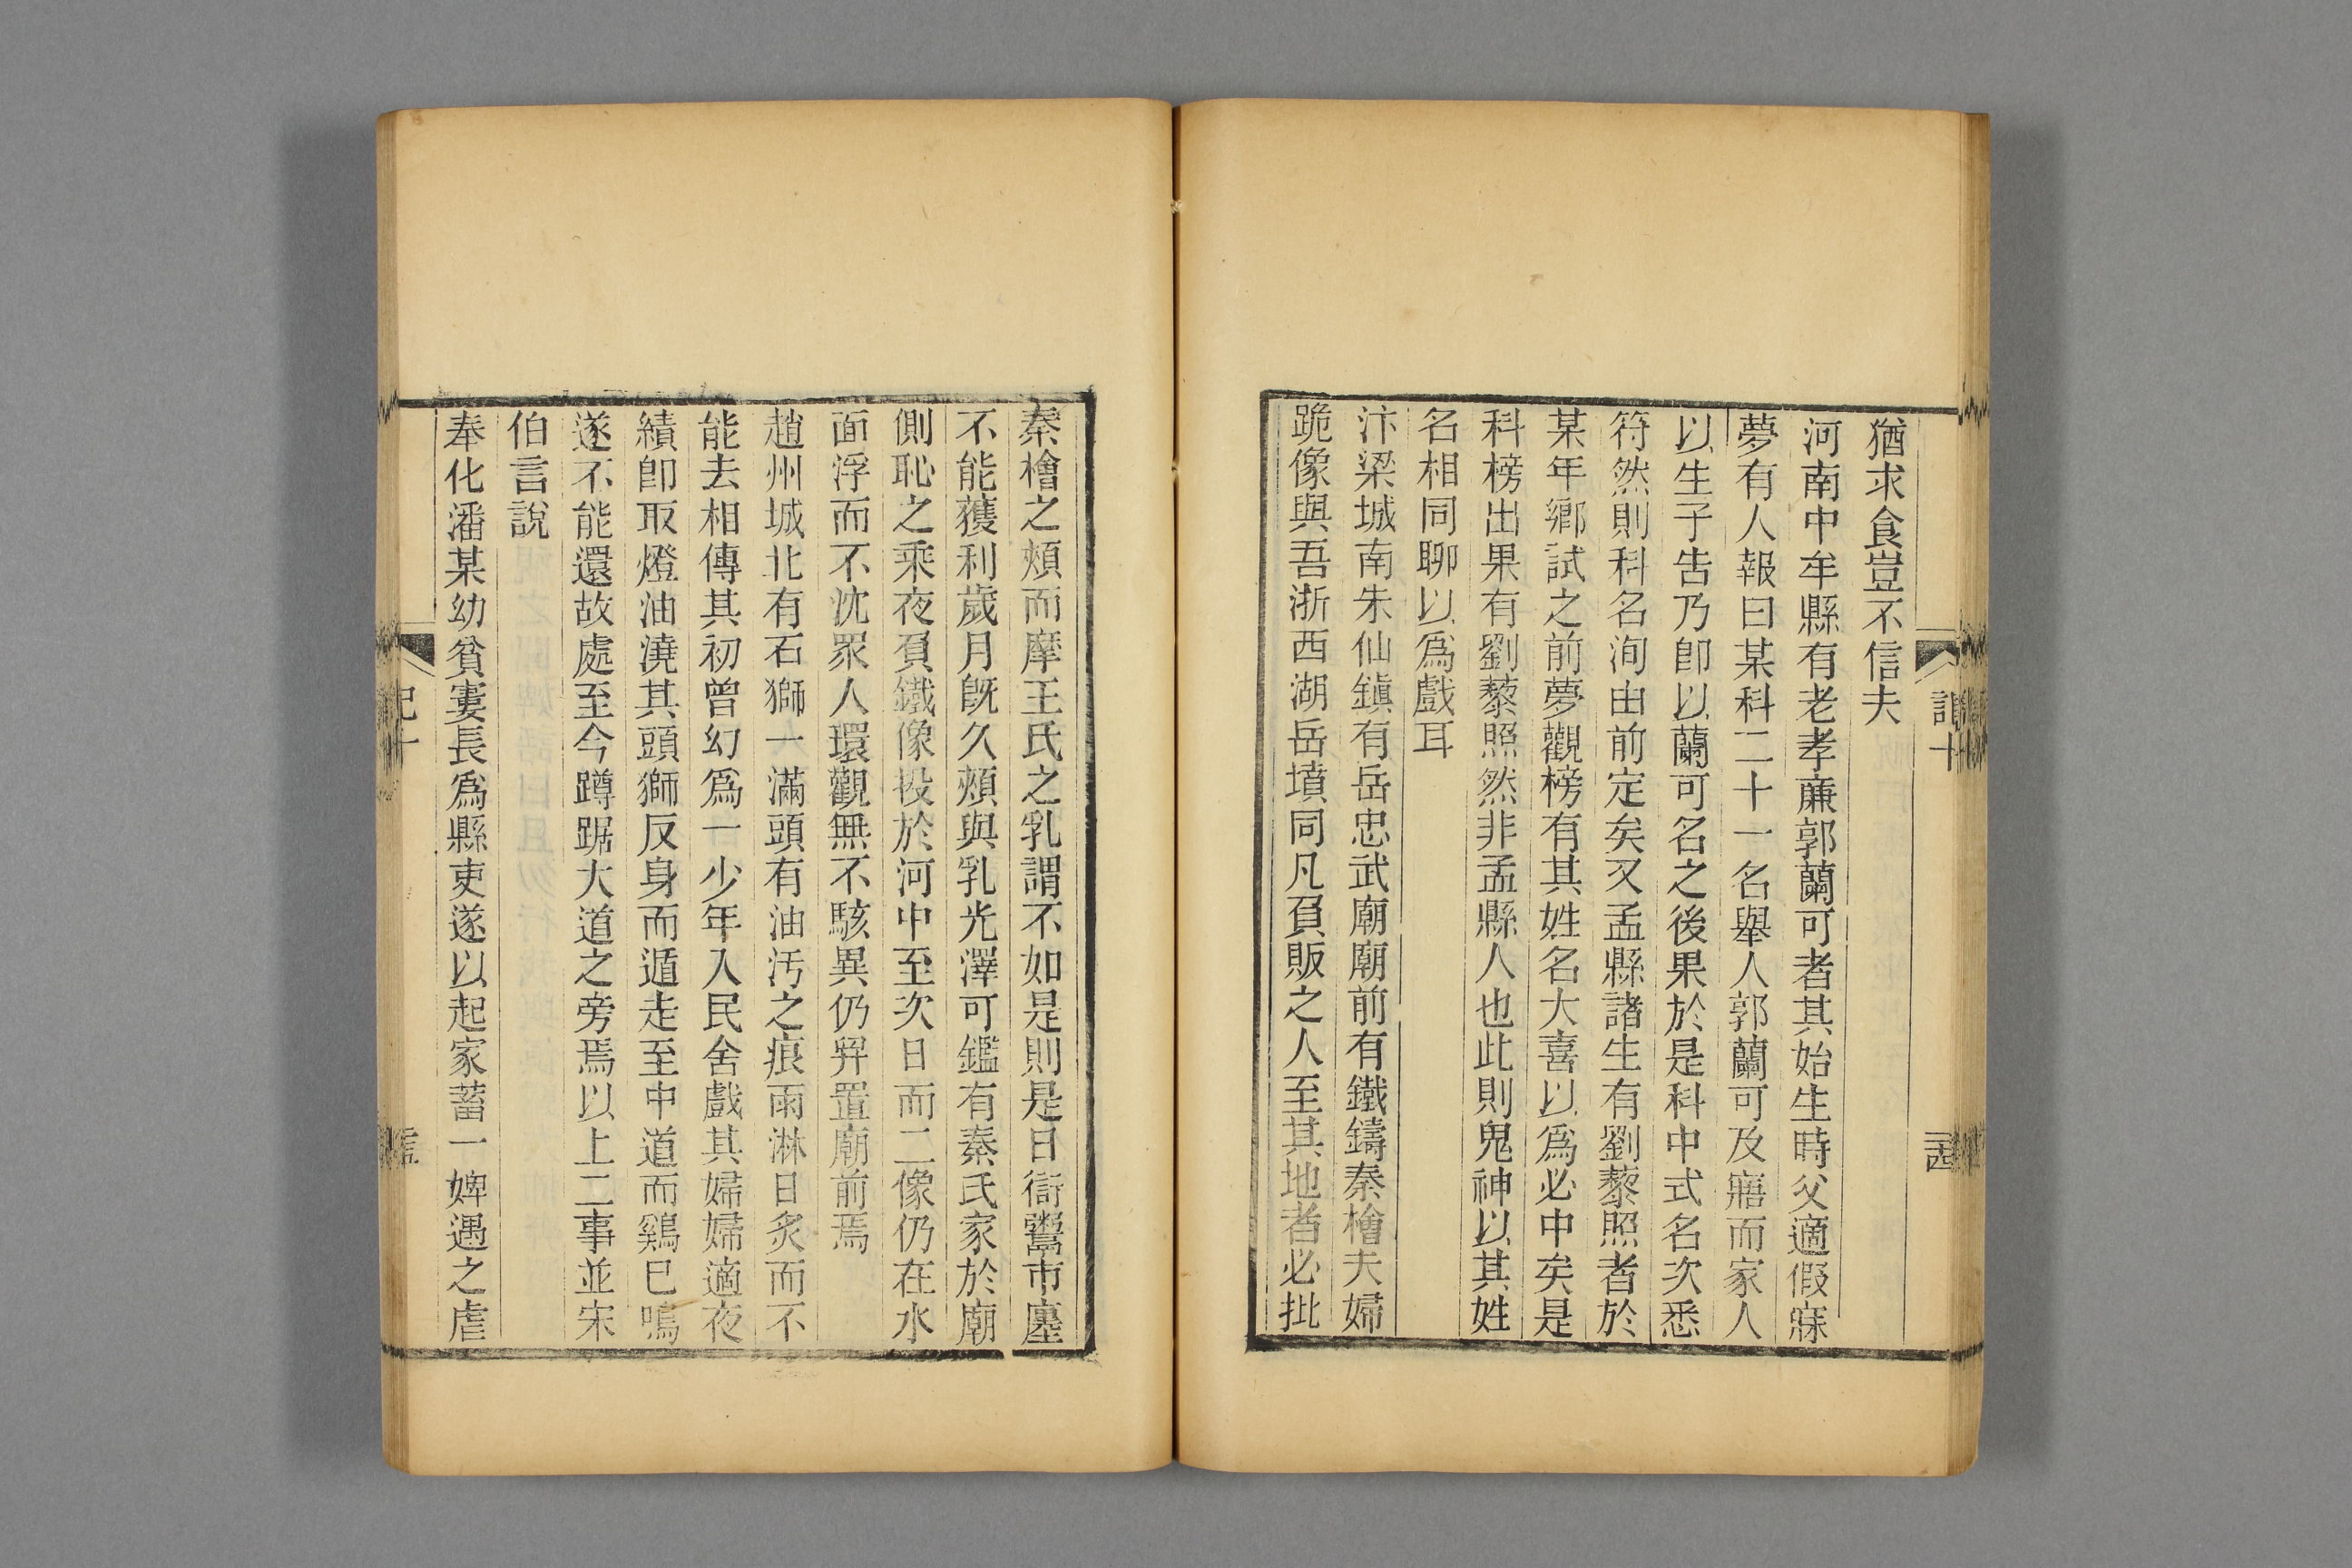 猶求食豈不信夫
河南中牟縣有老孝廉郭蘭可者其始生時父適假寐
夢有人報曰某科二十一名舉人郭蘭可及寤而家人
以生子告乃卽以蘭可名之後果於是科中式名次悉
符然則科名洵由前定矣又孟縣諸生有劉藜照者於
某年鄉試之前夢觀榜有其姓名大喜以爲必中矣是
科榜出果有劉藜照然非孟縣人也此則鬼神以其姓
名相同聊以爲戲耳
汴梁城南朱仙鎭有岳忠武廟廟前有鐵鑄秦檜夫婦
跪像與吾浙西湖岳墳同凡負販之人至其地者必批
秦檜之頰而摩王氏之乳謂不如是則是日衒鬻市廛
不能獲利歲月旣久頰與乳光澤可鑑有秦氏家於廟
側恥之乘夜負鐵像投於河中至次日而二像仍在水
面浮而不沈眾人環觀無不駭異仍舁置廟前焉
趙州城北有石獅一滿頭有油汚之痕雨淋日炙而不
能去相傳其初曾幻爲一少年入民舍戲其婦婦適夜
績卽取燈油澆其頭獅反身而遁走至中道而鷄已鳴
遂不能還故處至今蹲踞大道之旁焉以上二事並宋
伯言說
奉化潘某幼貧寠長爲縣吏遂以起家蓄一婢遇之虐